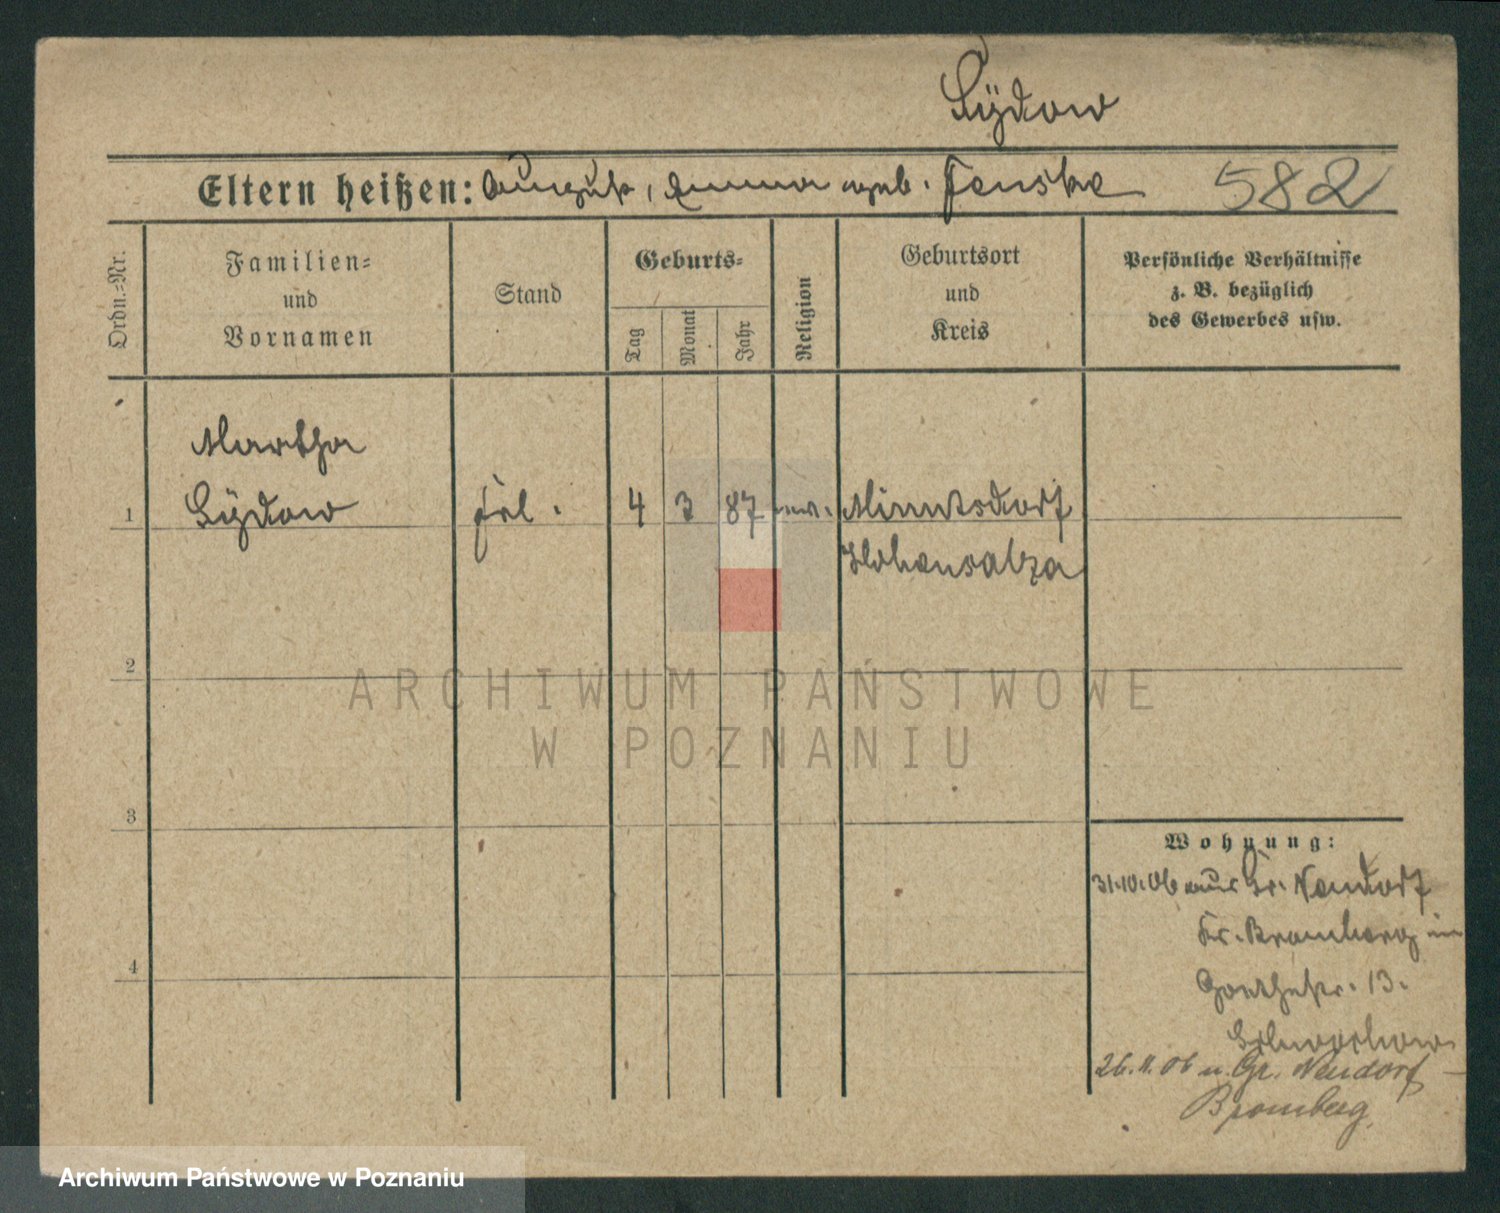 Sÿdow
Eltern heißen: August, Emma geb. Fenske 582
Ordn.-Nr.
Familien-
und
Vornamen
Stand
Geburts-
Tag
Monat
Jahr
Religion
Geburtsort
und
Kreis
Persönliche Verhältnisse
z. B. bezüglich
des Gewerbes usw.
Martha
1 Sÿdow Frl. 4 3 87 ev.
Hohensalza
2
ARCHIWUM PAŃSTWOWE
W POZNANIU
3
Wohnung:
31.10.06 aus Gr. Neudorf
Kr. Bromberg in
Goethestr. 13.
4
26.11.06 n. Gr. Neudorf -
Bromberg
Archiwum Państwowe w Poznaniu